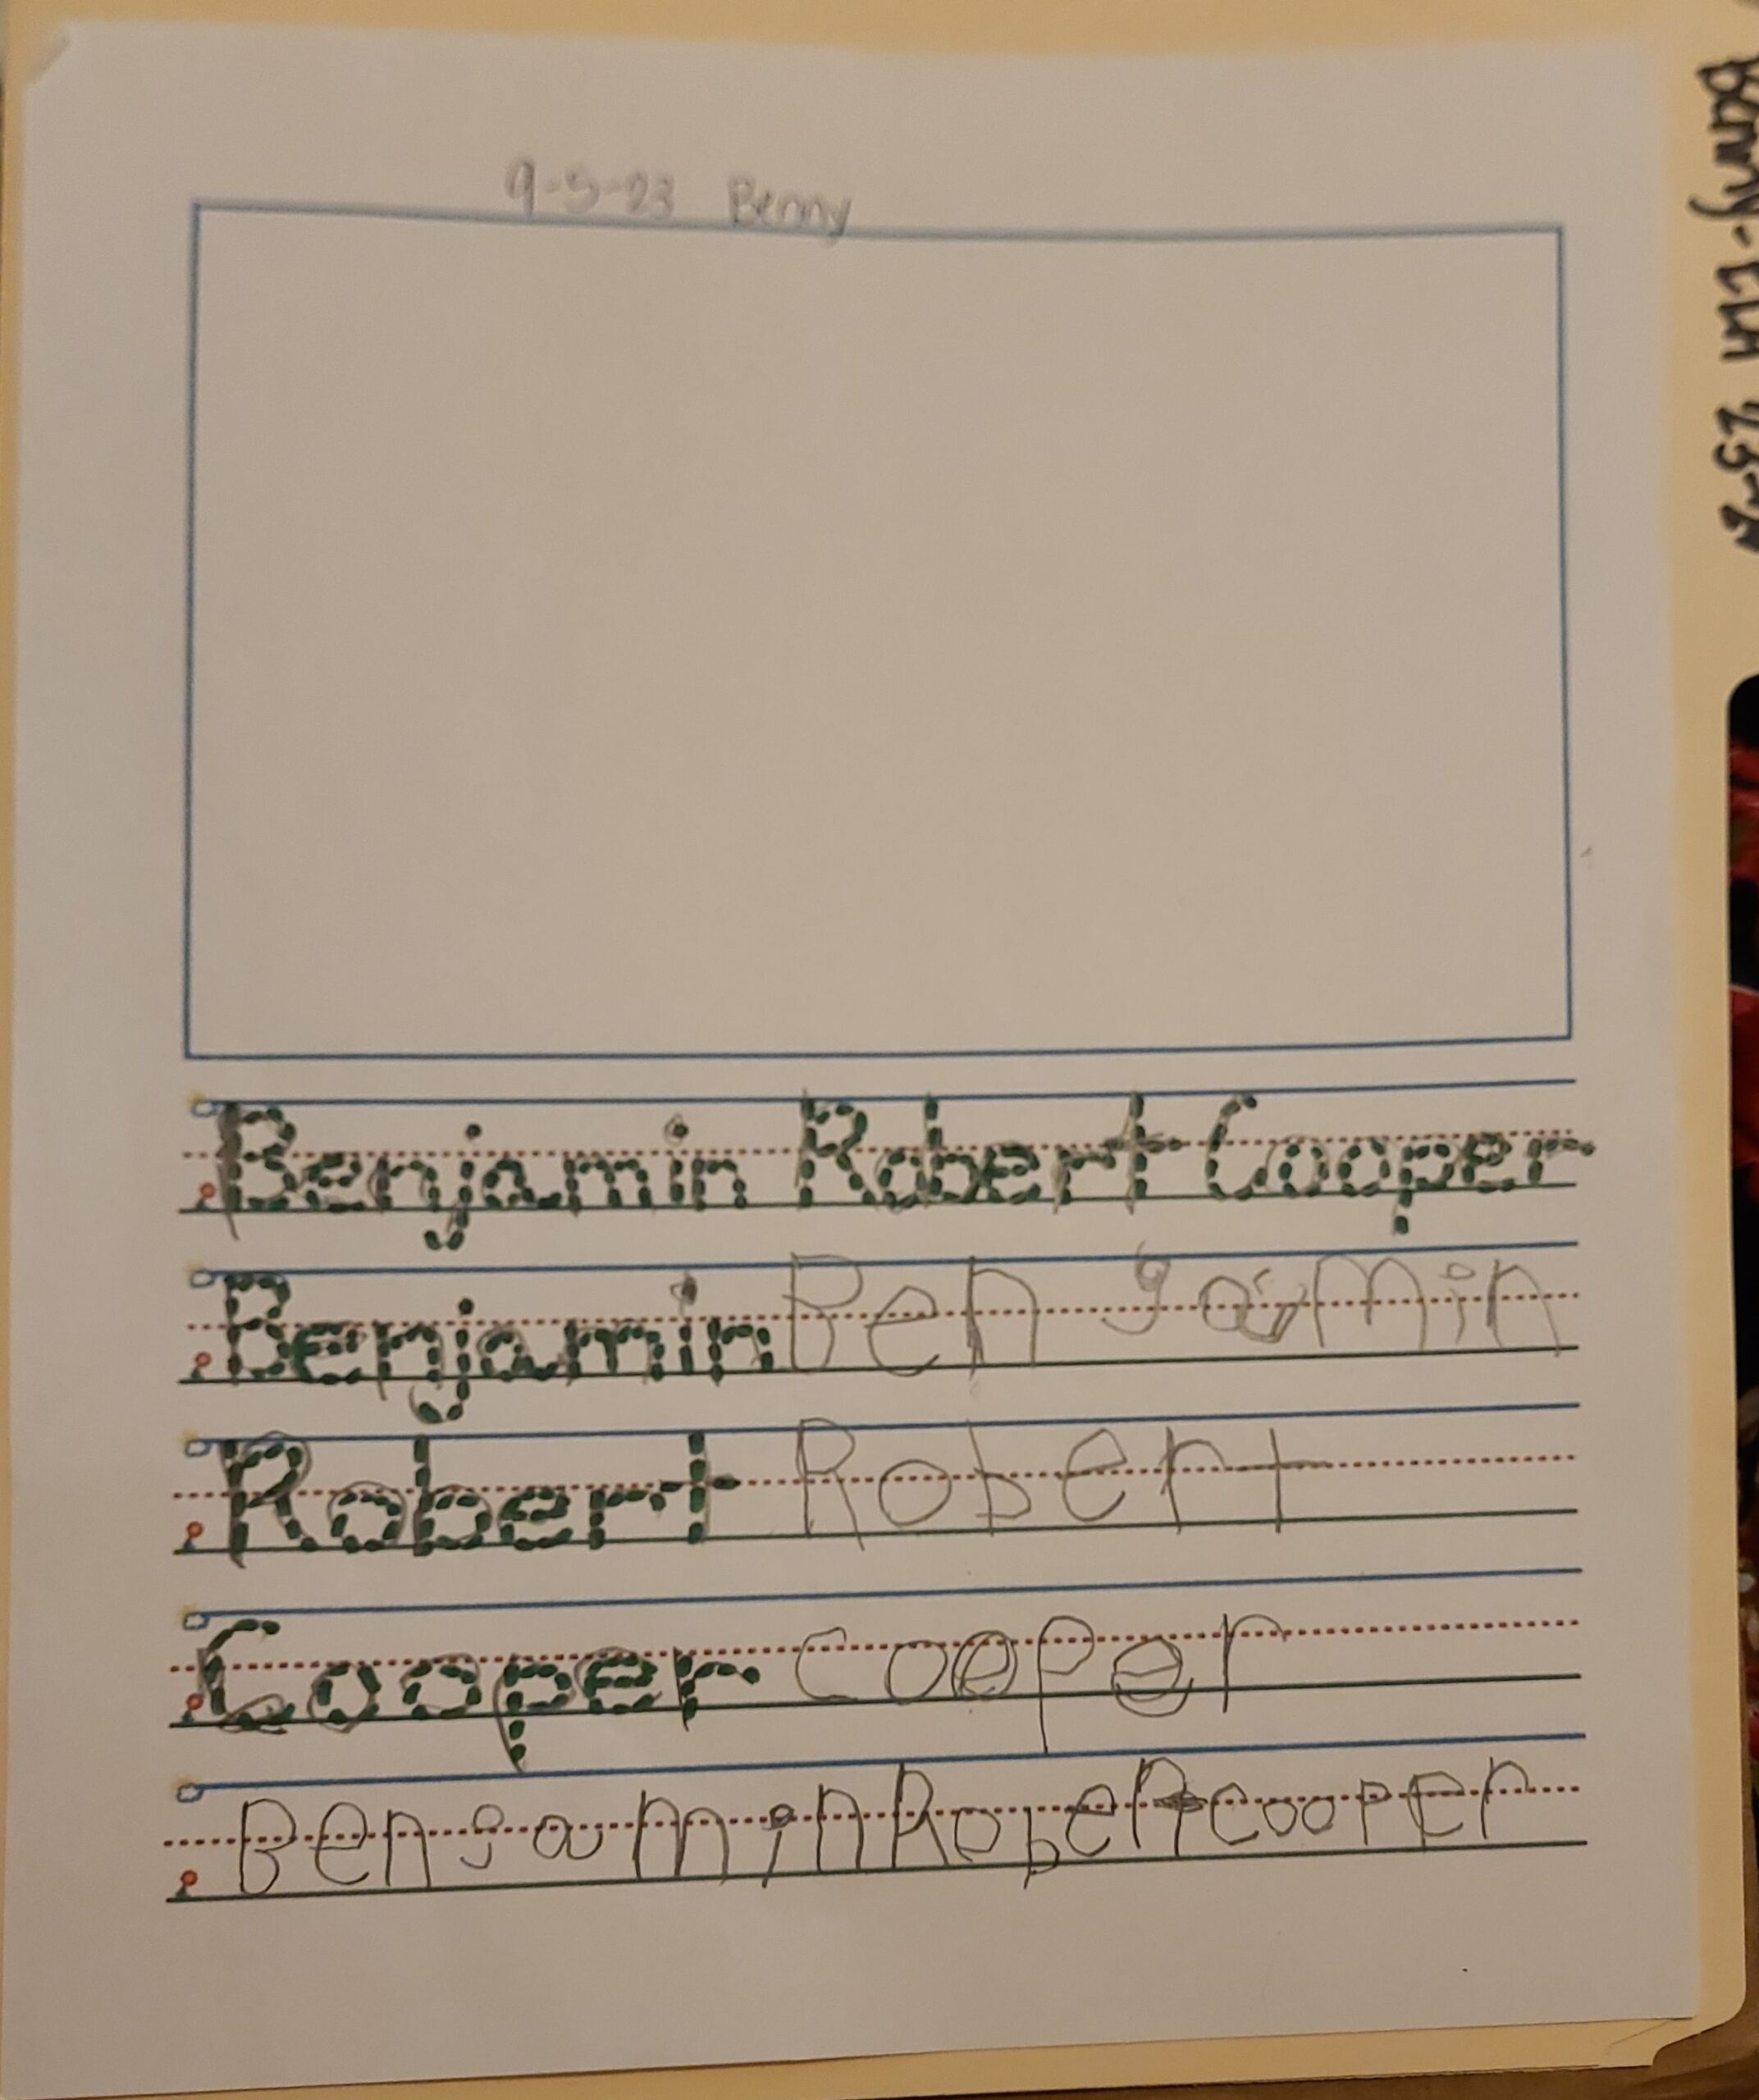 9-5-23 Benny
Benjamin Robert Cooper
Benjamin Ben jamin
Robert Robert
Cooper cooper
Benjamin Robert cooper
Benny-ELA 23-24